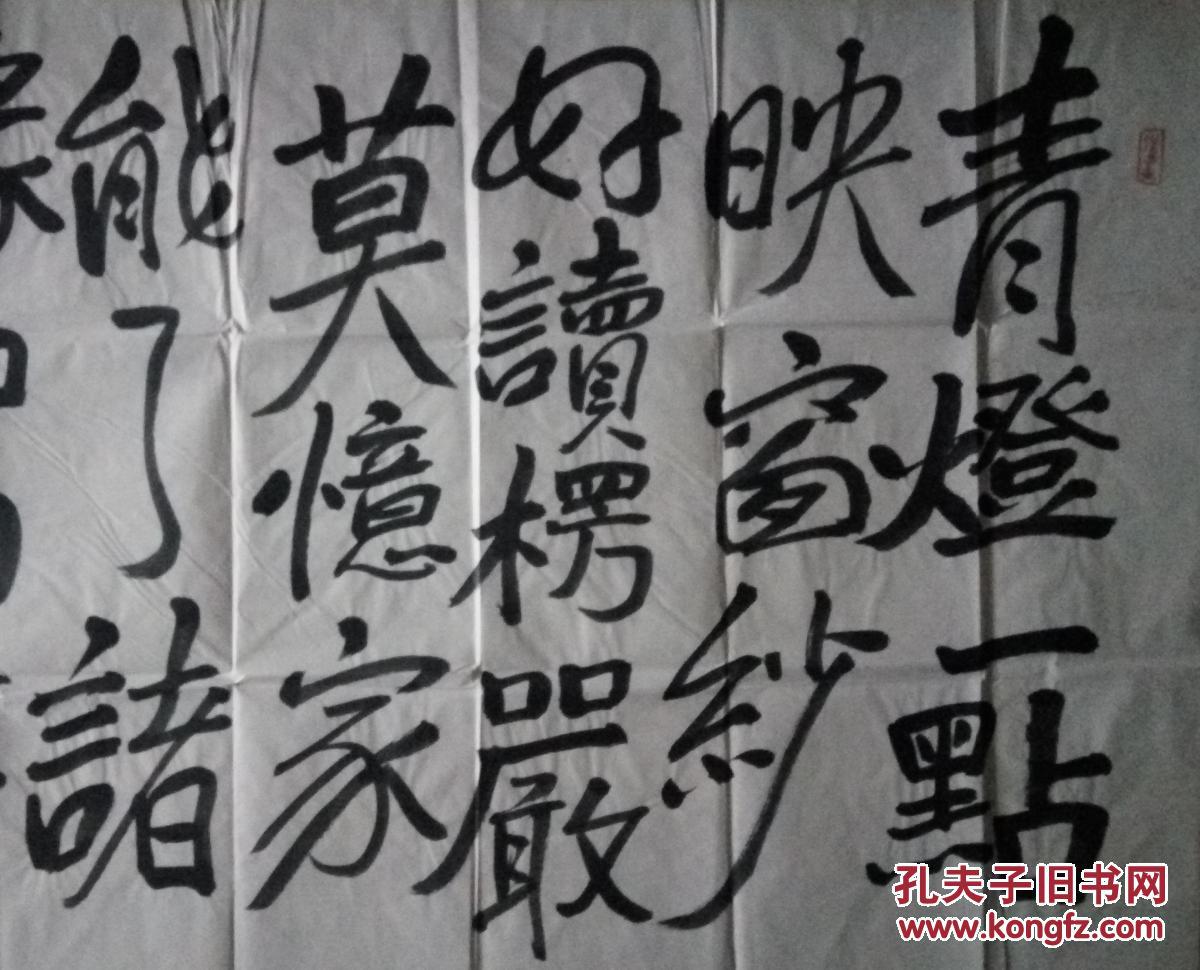 青燈一點
映窗紗
好讀楞嚴
莫憶家
能了諸
孔夫子旧书网
www.kongfz.com